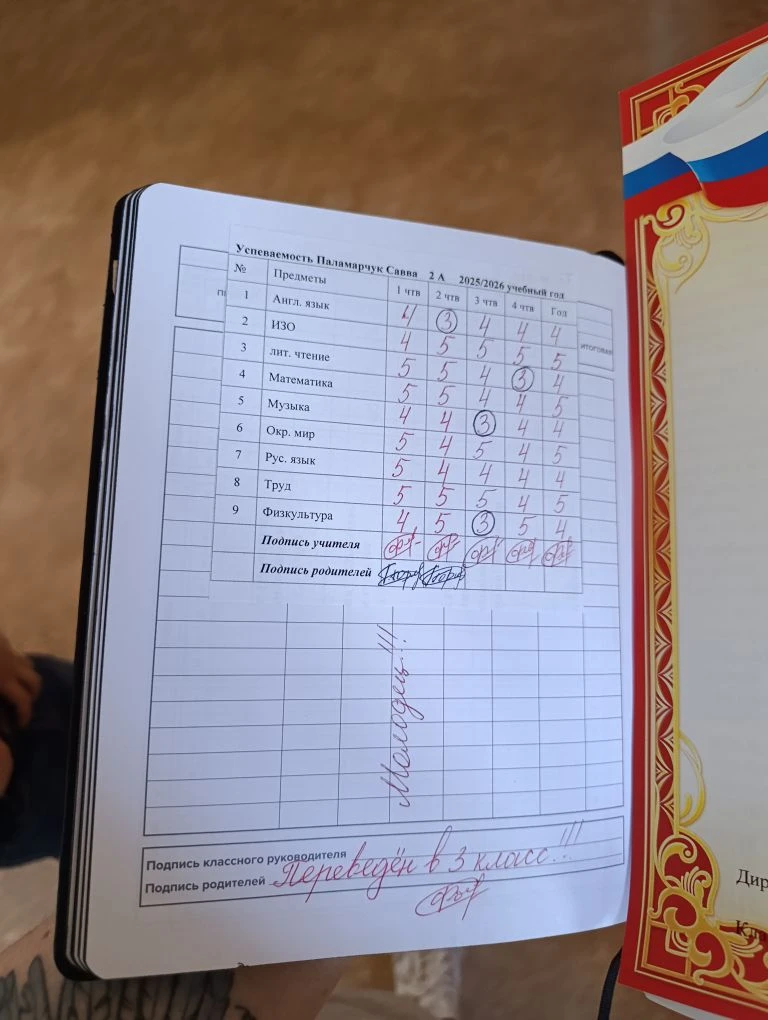 Успеваемость Паламарчук Савва 2 А 2025/2026 учебный год
№ Предметы 1 чтв 2 чтв 3 чтв 4 чтв Год
1 Англ. язык 4 3 4 4 4
2 ИЗО 4 5 5 5 5
3 лит. чтение 5 5 4 3 4
4 Математика 5 5 4 4 5
5 Музыка 4 4 3 4 4
6 Окр. мир 5 4 5 4 5
7 Рус. язык 5 4 4 4 4
8 Труд 5 5 5 4 5
9 Физкультура 4 5 3 5 4
Подпись учителя
Подпись родителей
итоговая
Молодец!!!
Подпись классного руководителя
Подпись родителей
Переведён в 3 класс!!!